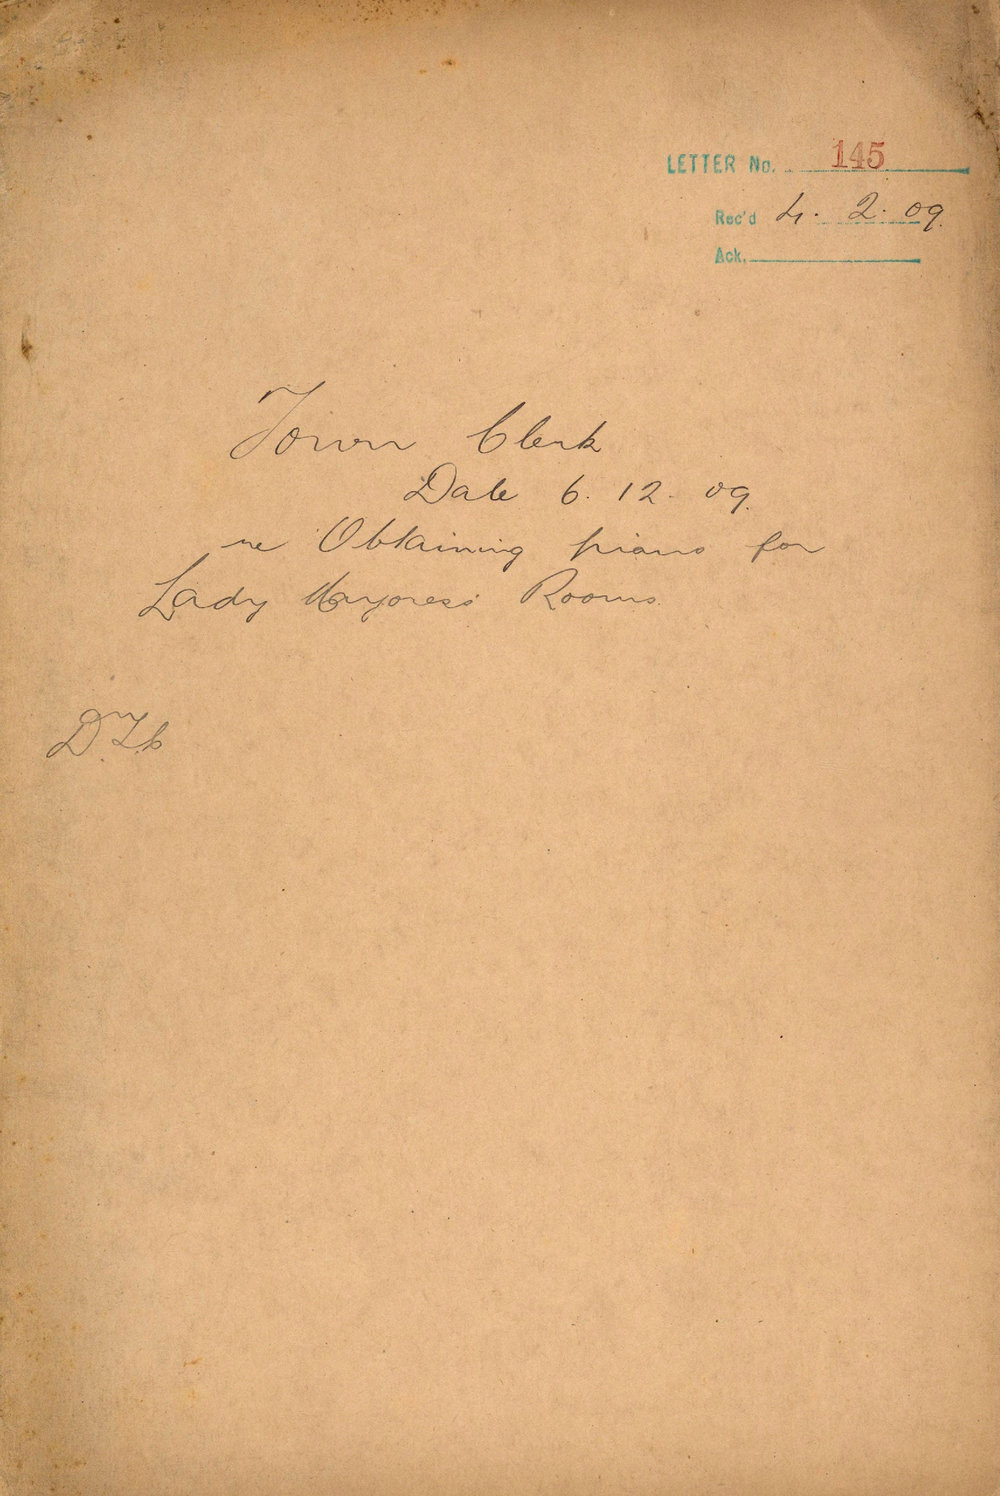 LETTER No. 145
Rec'd 4. 2. 09.
Ack.
Town Clerk
Date 6. 12. 09.
re Obtaining piano for
Lady Mayoress' Rooms.